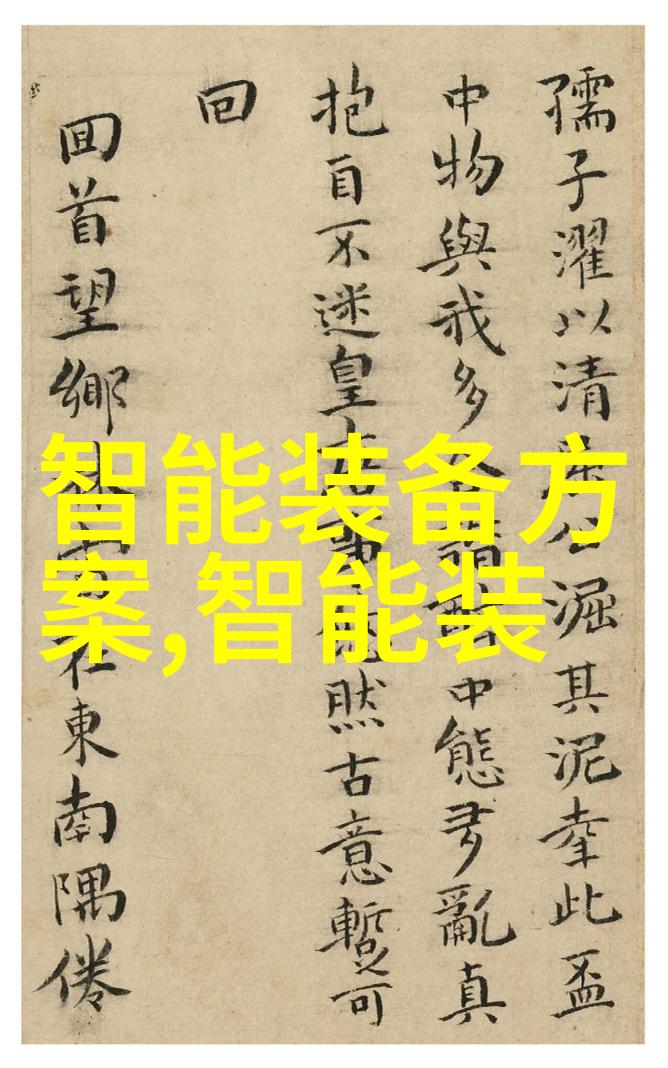 孺子濯以清公淈其泥此盃
中物與我多中態多亂真
抱自不迷皇然古意暫可
回
回首望鄉在東南隅倦
智能装备方
案,智能装